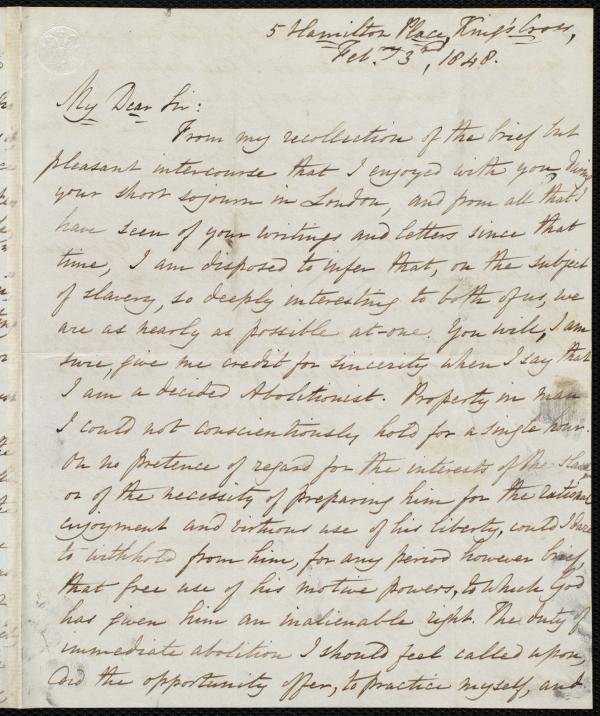 5 Hamilton Place, King's Cross,
Feb.ry 3rd, 1848.
My Dear Sir:
From my recollection of the brief but
pleasant intercourse that I enjoyed with you, during
your short sojourn in London, and from all that I
have seen of your writings and letters since that
time, I am disposed to infer that, on the subject
of slavery, so deeply interesting to both of us, we
are as nearly as possible at-one. You will, I am
sure, give me credit for sincerity when I say that
I am a decided Abolitionist. Property in man
I could not conscientiously hold for a single hour.
On no pretence of regard for the interests of the slave,
or of the necessity of preparing him for the rational
enjoyment and virtuous use of his liberty, could I dare
to withhold from him, for any period however brief,
that free use of his motive powers, to which God
has given him an inalienable right. The duty of
immediate abolition I should feel called upon,
did the opportunity offer, to practice myself, and